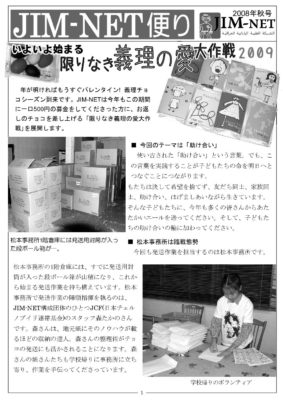 JIM-NET便り
2008年秋号
JIM-NET
いよいよ始まる
限りなき義理の愛大作戦2009
年が明ければもうすぐバレンタイン! 義理チョ
コシーズン到来です。JIM-NETは今年もこの期間
に一口500円の募金をしてくださった方に、お返
しのチョコを差し上げる「限りなき義理の愛大作
戦」を展開します。
■ 今回のテーマは「助け合い」
使い古された「助け合い」という言葉。でも、こ
の言葉を実践することが子どもたちの命を明日へと
つなぐことにつながります。
もたちは決して希望を捨てず、友だち同士、家族同
士、助け合い、はげましあいながら生きています。
そんな子どもたちに、今年も多くの皆さんからあた
たかいエールを送ってください。そして、子どもた
ちの助け合いの輪に加わってください。
松本事務所1階倉庫には発送用封筒が入っ
た段ボール箱が…。
■ 松本事務所は臨戦態勢
今回も発送作業を担当するのは松本事務所です。
松本事務所の1階倉庫には、すでに発送用封
筒が入った段ボール箱が山積になり、これか
ら始まる発送作業を待ち構えています。松本事
務所で発送作業の陣頭指揮を執るのは、
JIM-NET構成団体のひとつJCF(日本チェル
ノブイリ連帯基金)のスタッフ森たかのさん
です。森さんは、地元紙にそのノウハウが載
るほどの収納の達人。森さんの整理術がチョ
コの発送にも活かされることになります。森
さんの娘さんたちも学校帰りに事務所に立ち
寄り、作業を手伝ってくださっています。
学校帰りのボランティア
1